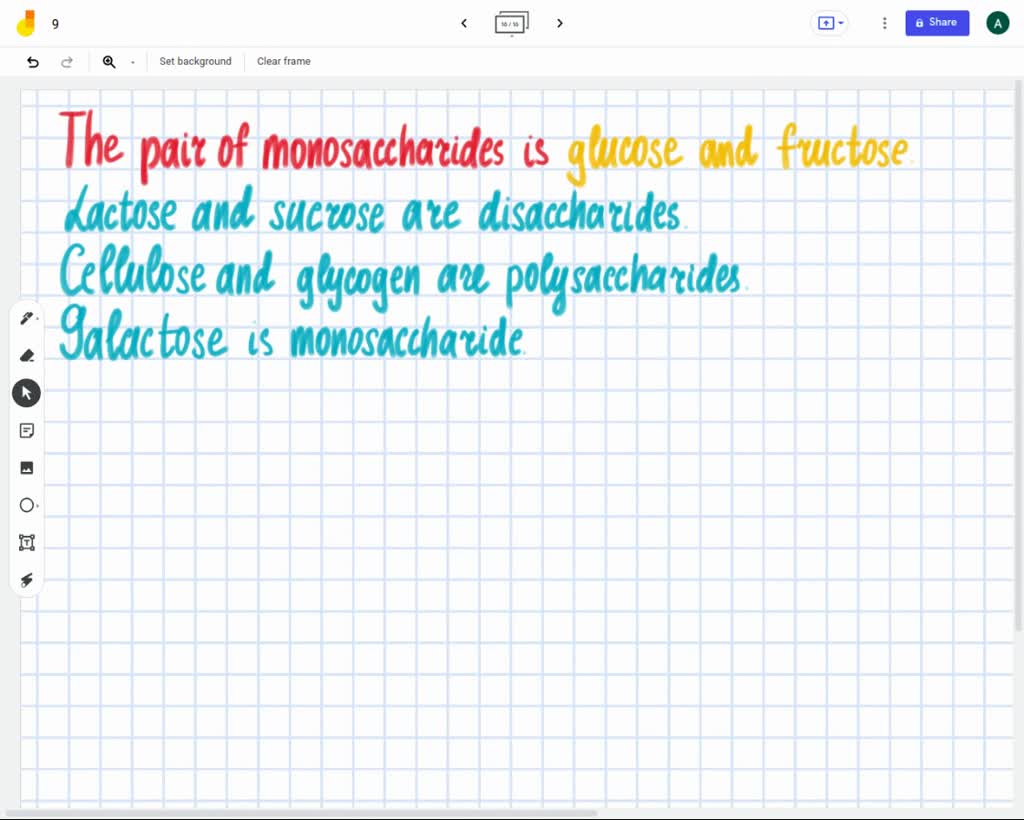 9
10 / 10
Share
A
Set background
Clear frame
The pair of monosaccharides is glucose and fructose.
Lactose and sucrose are disaccharides.
Cellulose and glycogen are polysaccharides.
Galactose is monosaccharide.
T